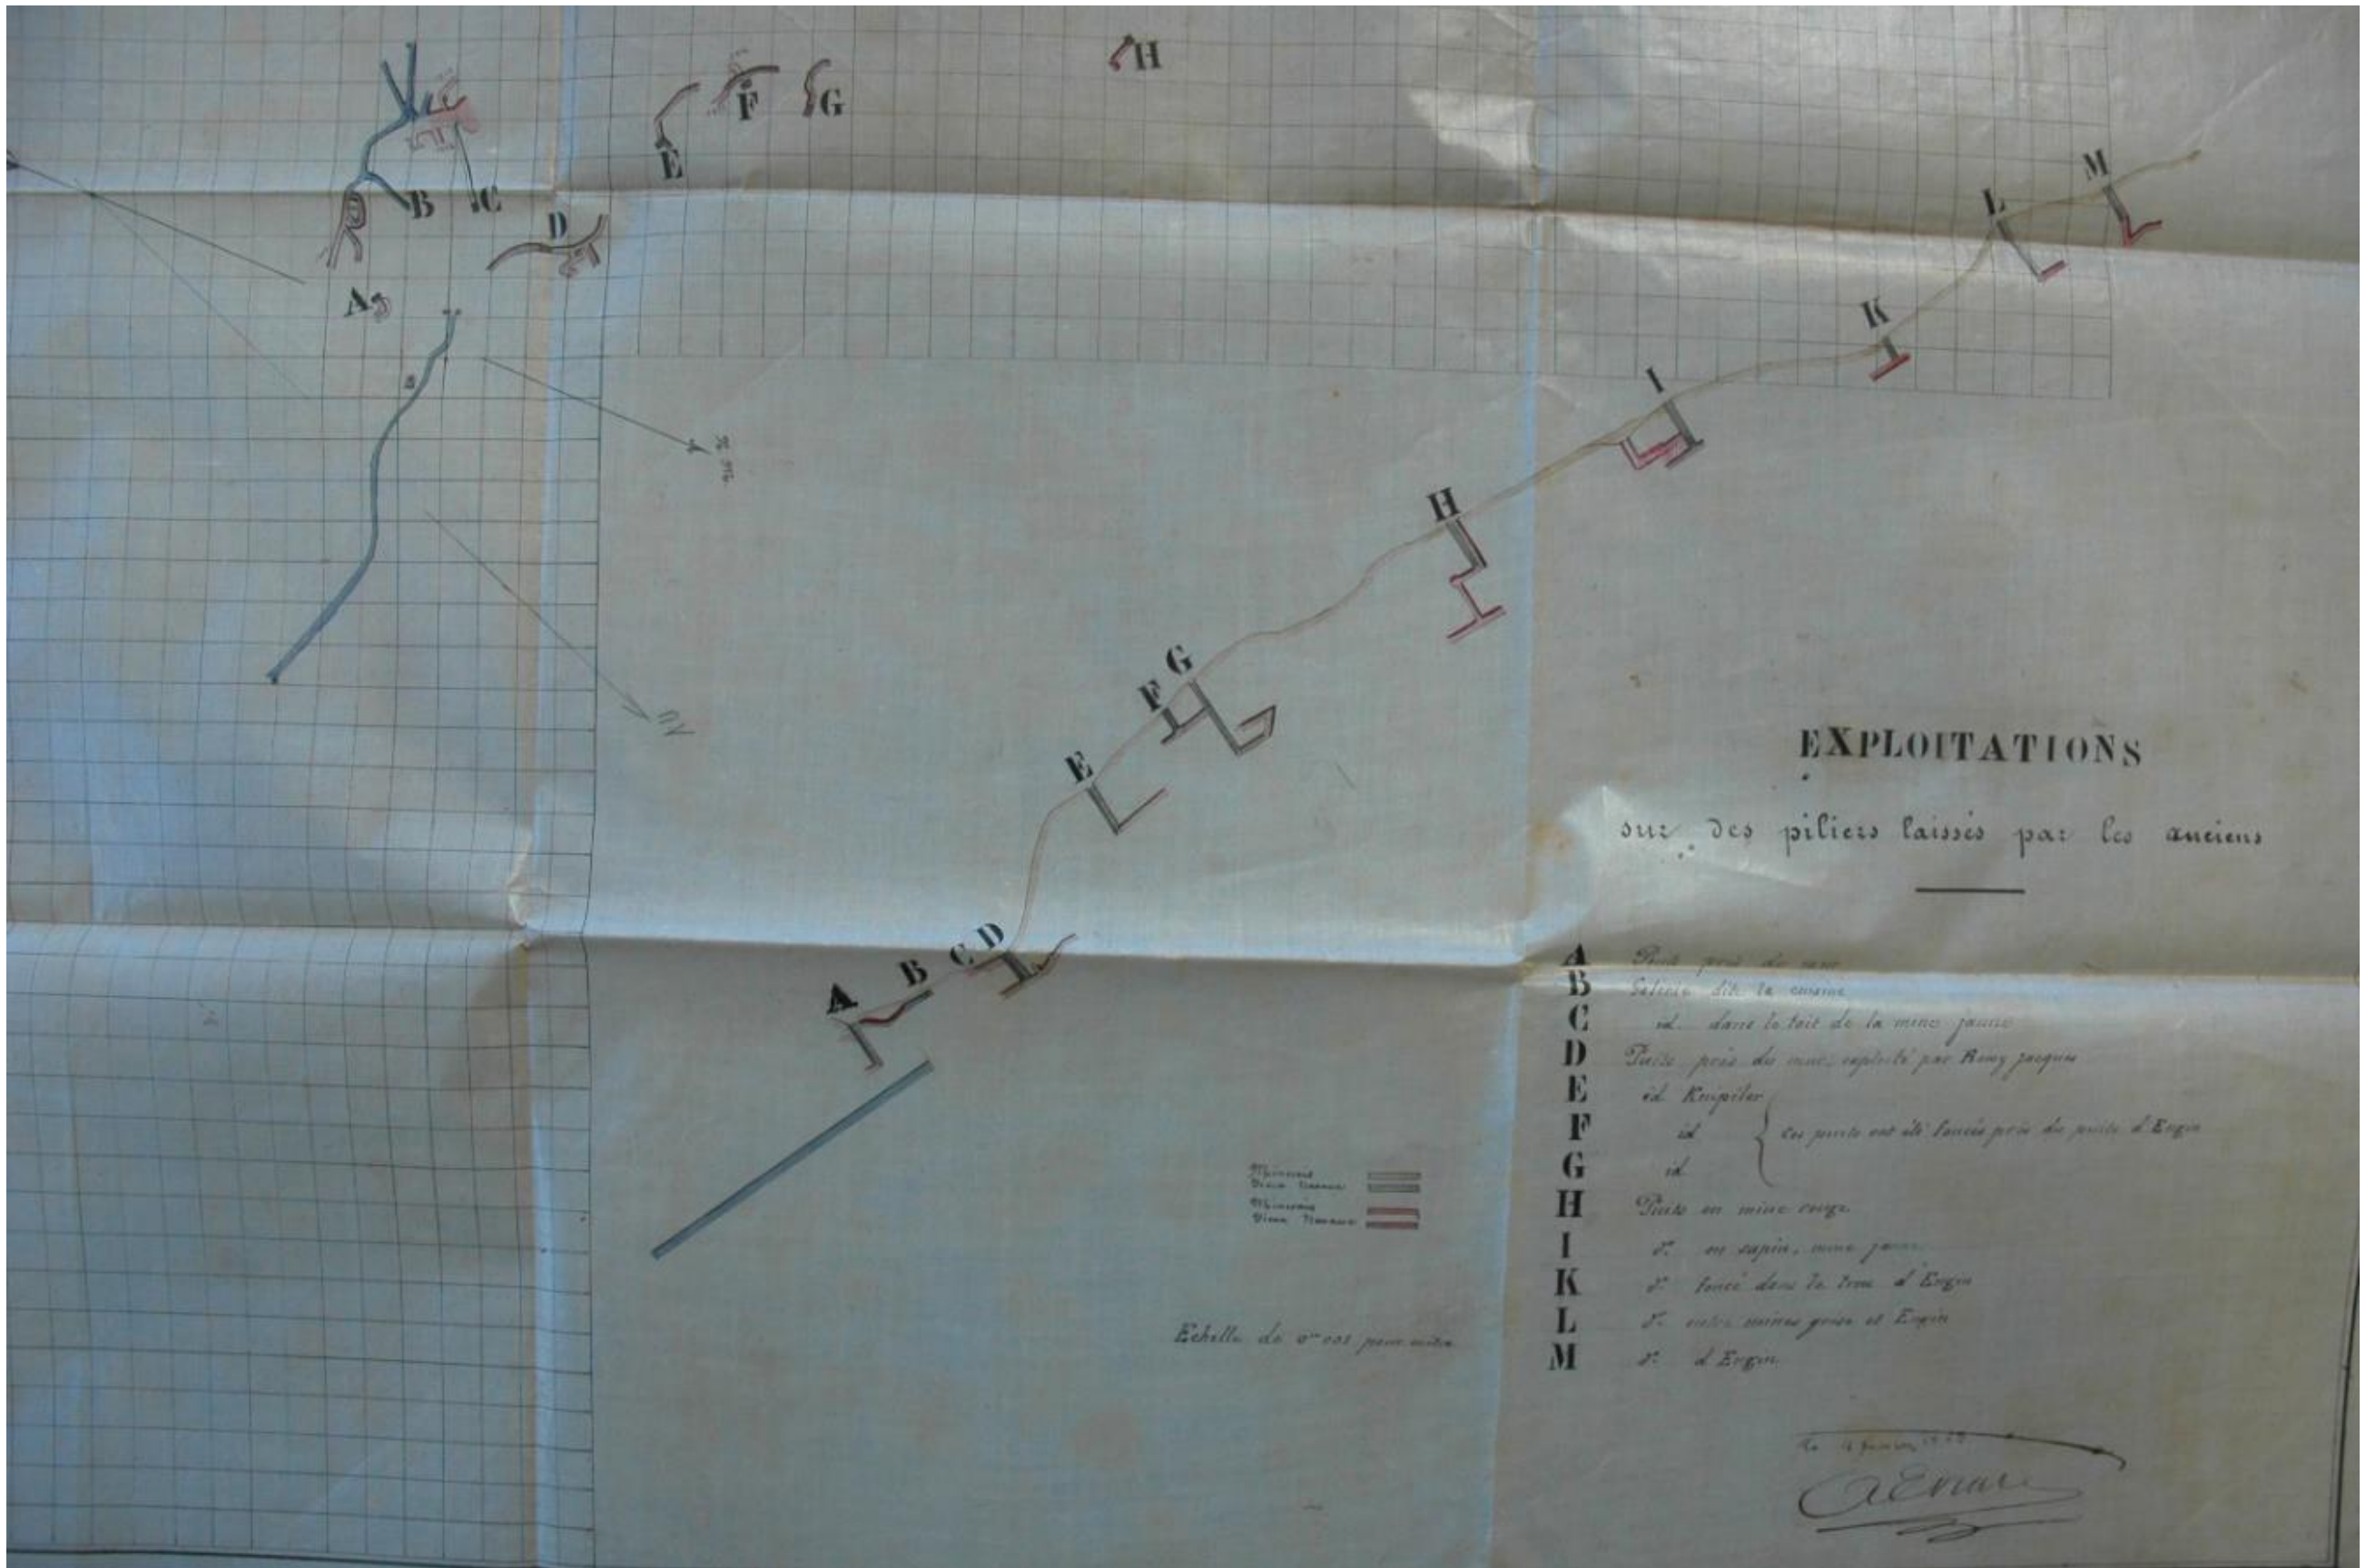 H
F
G
E
B
C
D
A
M
L
K
I
H
G
F
E
D
C
B
A
EXPLOITATIONS
sur des piliers laissés par les anciens
A Puits près du
B Galerie dite la cuisine
C id. dans le toit de la mine jaune
D Puits près du mur, exploité par Remy Jacques
E id
F id
G id
Ces puits ont été foncés près du puits d'Engin
H Puits en mine rouge
I en sapin, mine jaune
K foncé dans le trou d'Engin
L entre mines grise et Engin
M d'Engin
Minerais
Vieux Travaux
Minerais
Vieux Travaux
Echelle de 0m 001 pour mètre